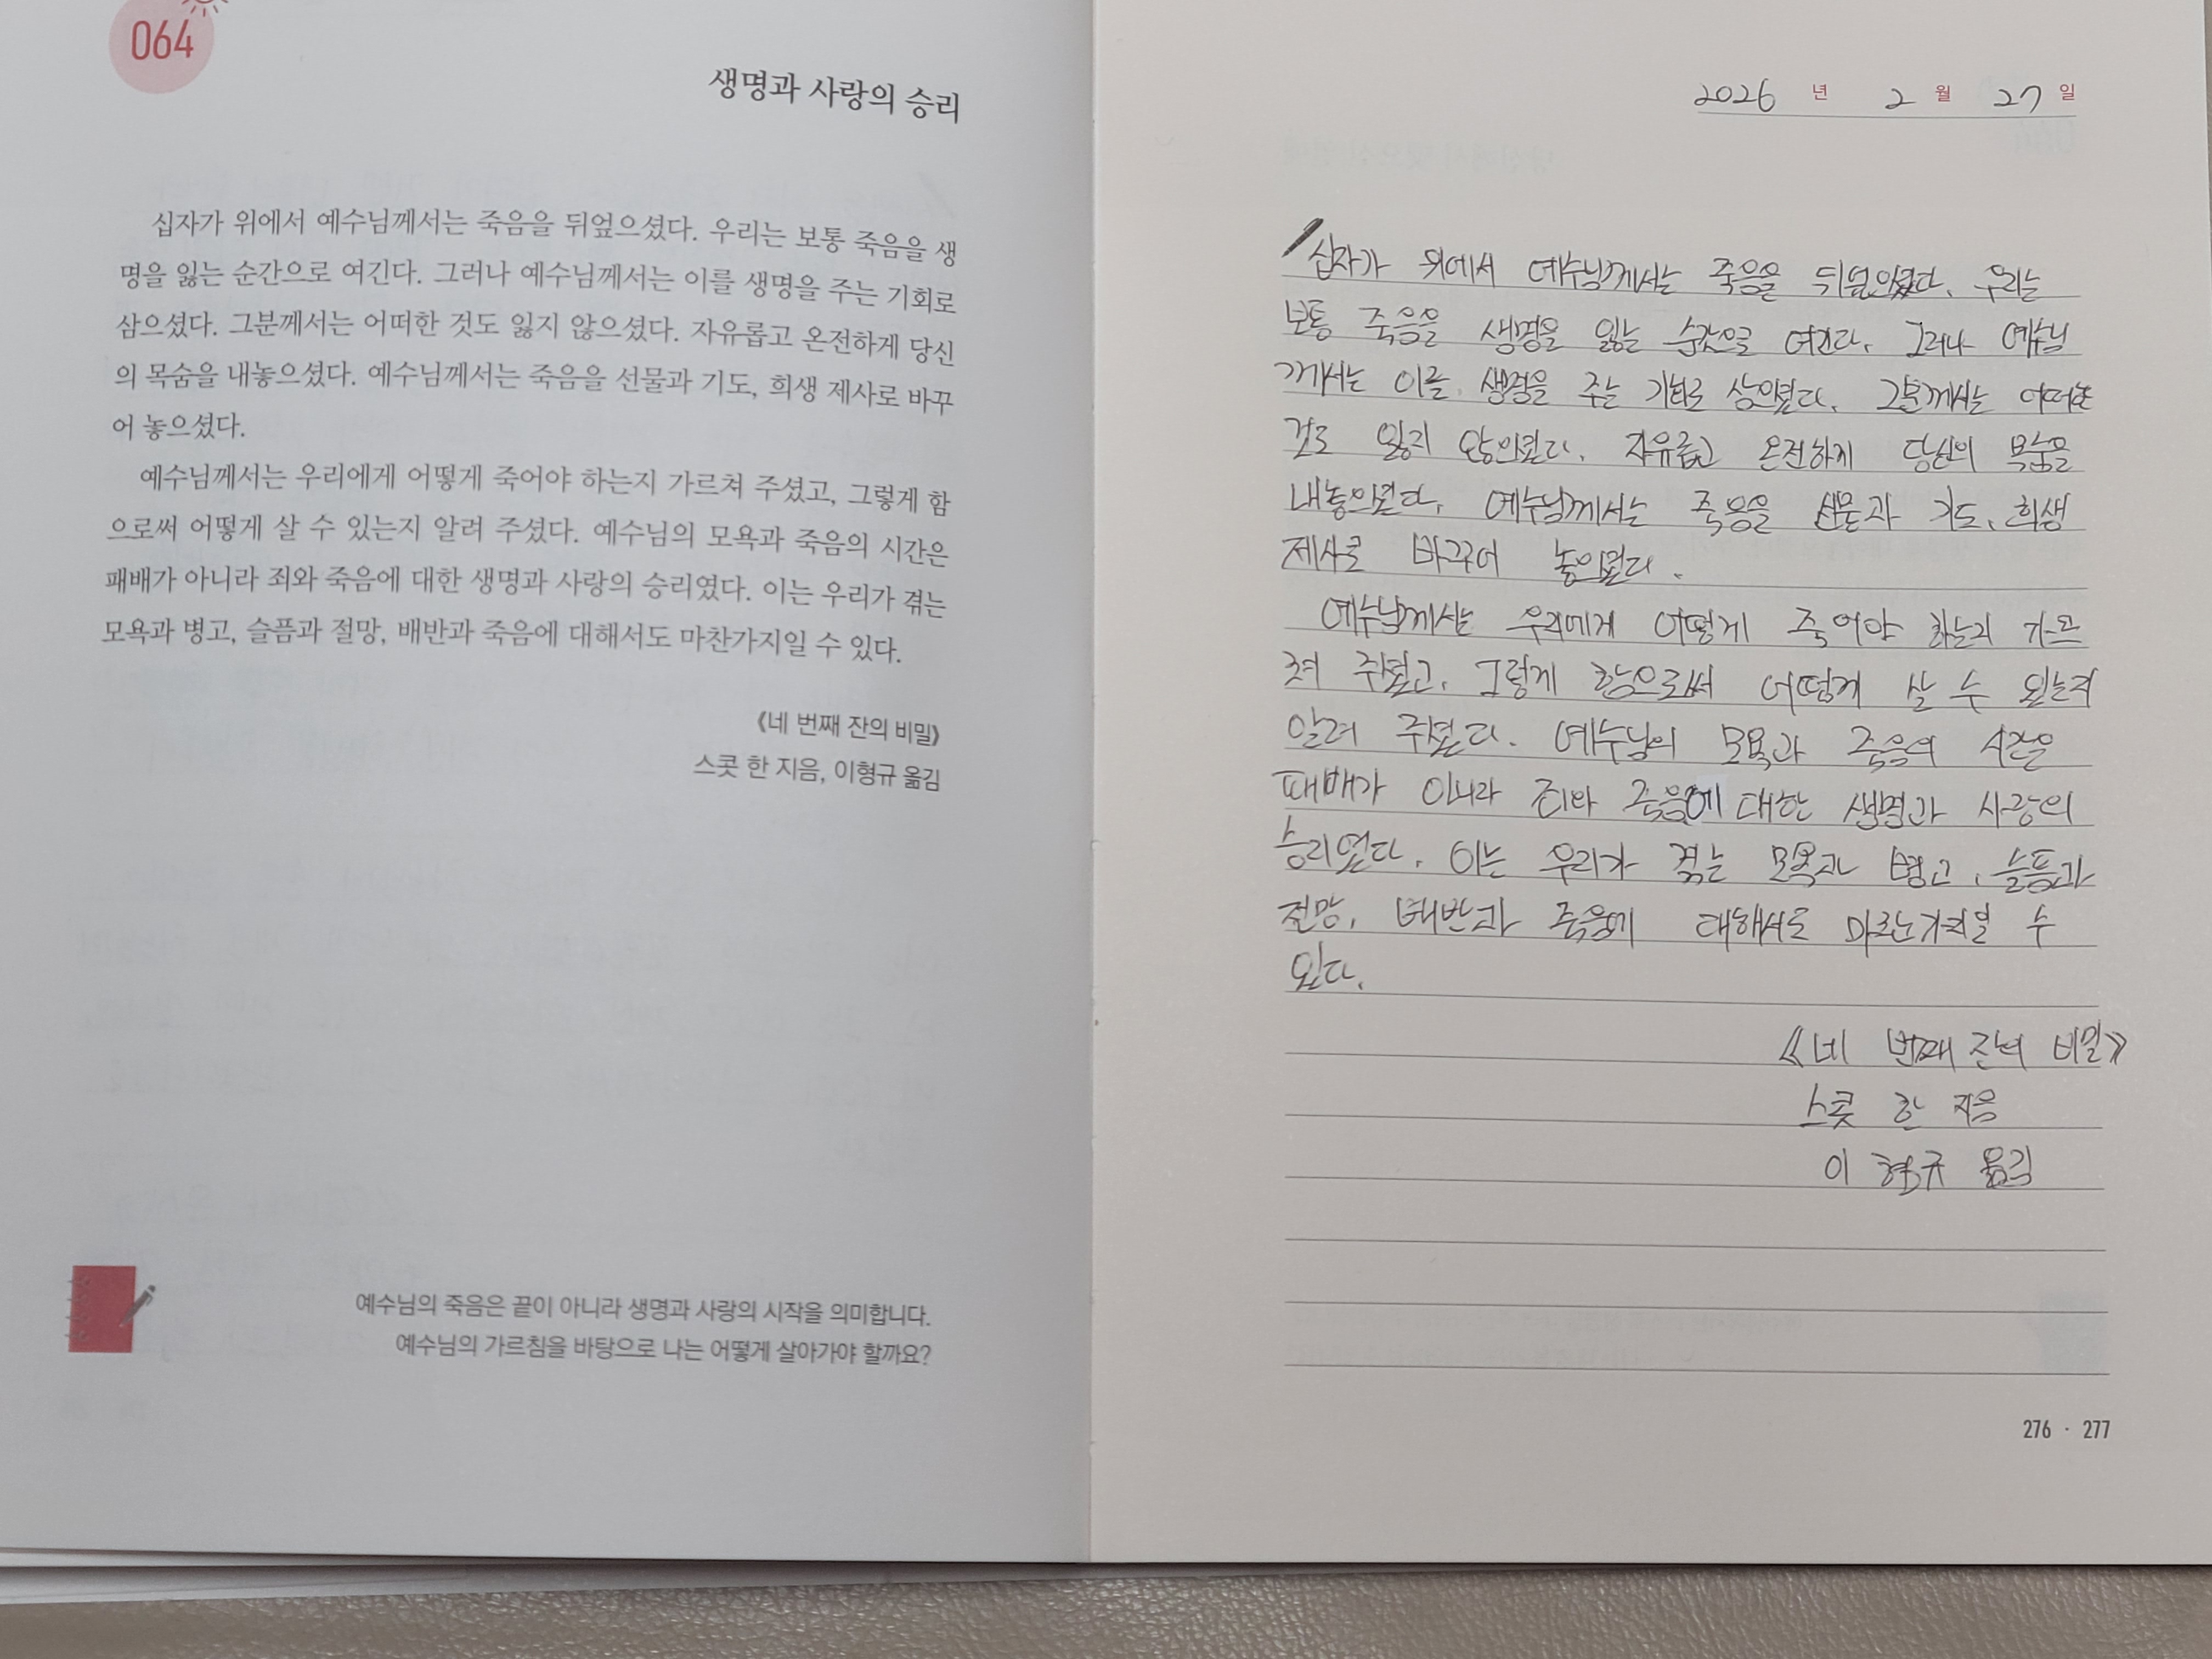 064
생명과 사랑의 승리
십자가 위에서 예수님께서는 죽음을 뒤엎으셨다. 우리는 보통 죽음을 생
명을 잃는 순간으로 여긴다. 그러나 예수님께서는 이를 생명을 주는 기회로
삼으셨다. 그분께서는 어떠한 것도 잃지 않으셨다. 자유롭고 온전하게 당신
의 목숨을 내놓으셨다. 예수님께서는 죽음을 선물과 기도, 희생 제사로 바꾸
어 놓으셨다.
예수님께서는 우리에게 어떻게 죽어야 하는지 가르쳐 주셨고, 그렇게 함
으로써 어떻게 살 수 있는지 알려 주셨다. 예수님의 모욕과 죽음의 시간은
패배가 아니라 죄와 죽음에 대한 생명과 사랑의 승리였다. 이는 우리가 겪는
모욕과 병고, 슬픔과 절망, 배반과 죽음에 대해서도 마찬가지일 수 있다.
《네 번째 잔의 비밀》
스콧 한 지음, 이형규 옮김
예수님의 죽음은 끝이 아니라 생명과 사랑의 시작을 의미합니다.
예수님의 가르침을 바탕으로 나는 어떻게 살아가야 할까요?
2026 년 2 월 27 일
십자가 위에서 예수님께서는 죽음을 뒤엎으셨다. 우리는
보통 죽음을 생명을 잃는 순간으로 여긴다. 그러나 예수님
께서는 이를 생명을 주는 기회로 삼으셨다. 그분께서는 어떠한
것도 잃지 않으셨다. 자유롭고 온전하게 당신의 목숨을
내놓으셨다. 예수님께서는 죽음을 선물과 기도, 희생
제사로 바꾸어 놓으셨다.
예수님께서는 우리에게 어떻게 죽어야 하는지 가르
쳐 주셨고, 그렇게 함으로써 어떻게 살 수 있는지
알려 주셨다. 예수님의 모욕과 죽음의 시간은
패배가 아니라 죄와 죽음에 대한 생명과 사랑의
승리였다. 이는 우리가 겪는 모욕과 병고, 슬픔과
절망, 배반과 죽음에 대해서도 마찬가지일 수
있다.
《네 번째 잔의 비밀》
스콧 한 지음
이형규 옮김
276 · 277